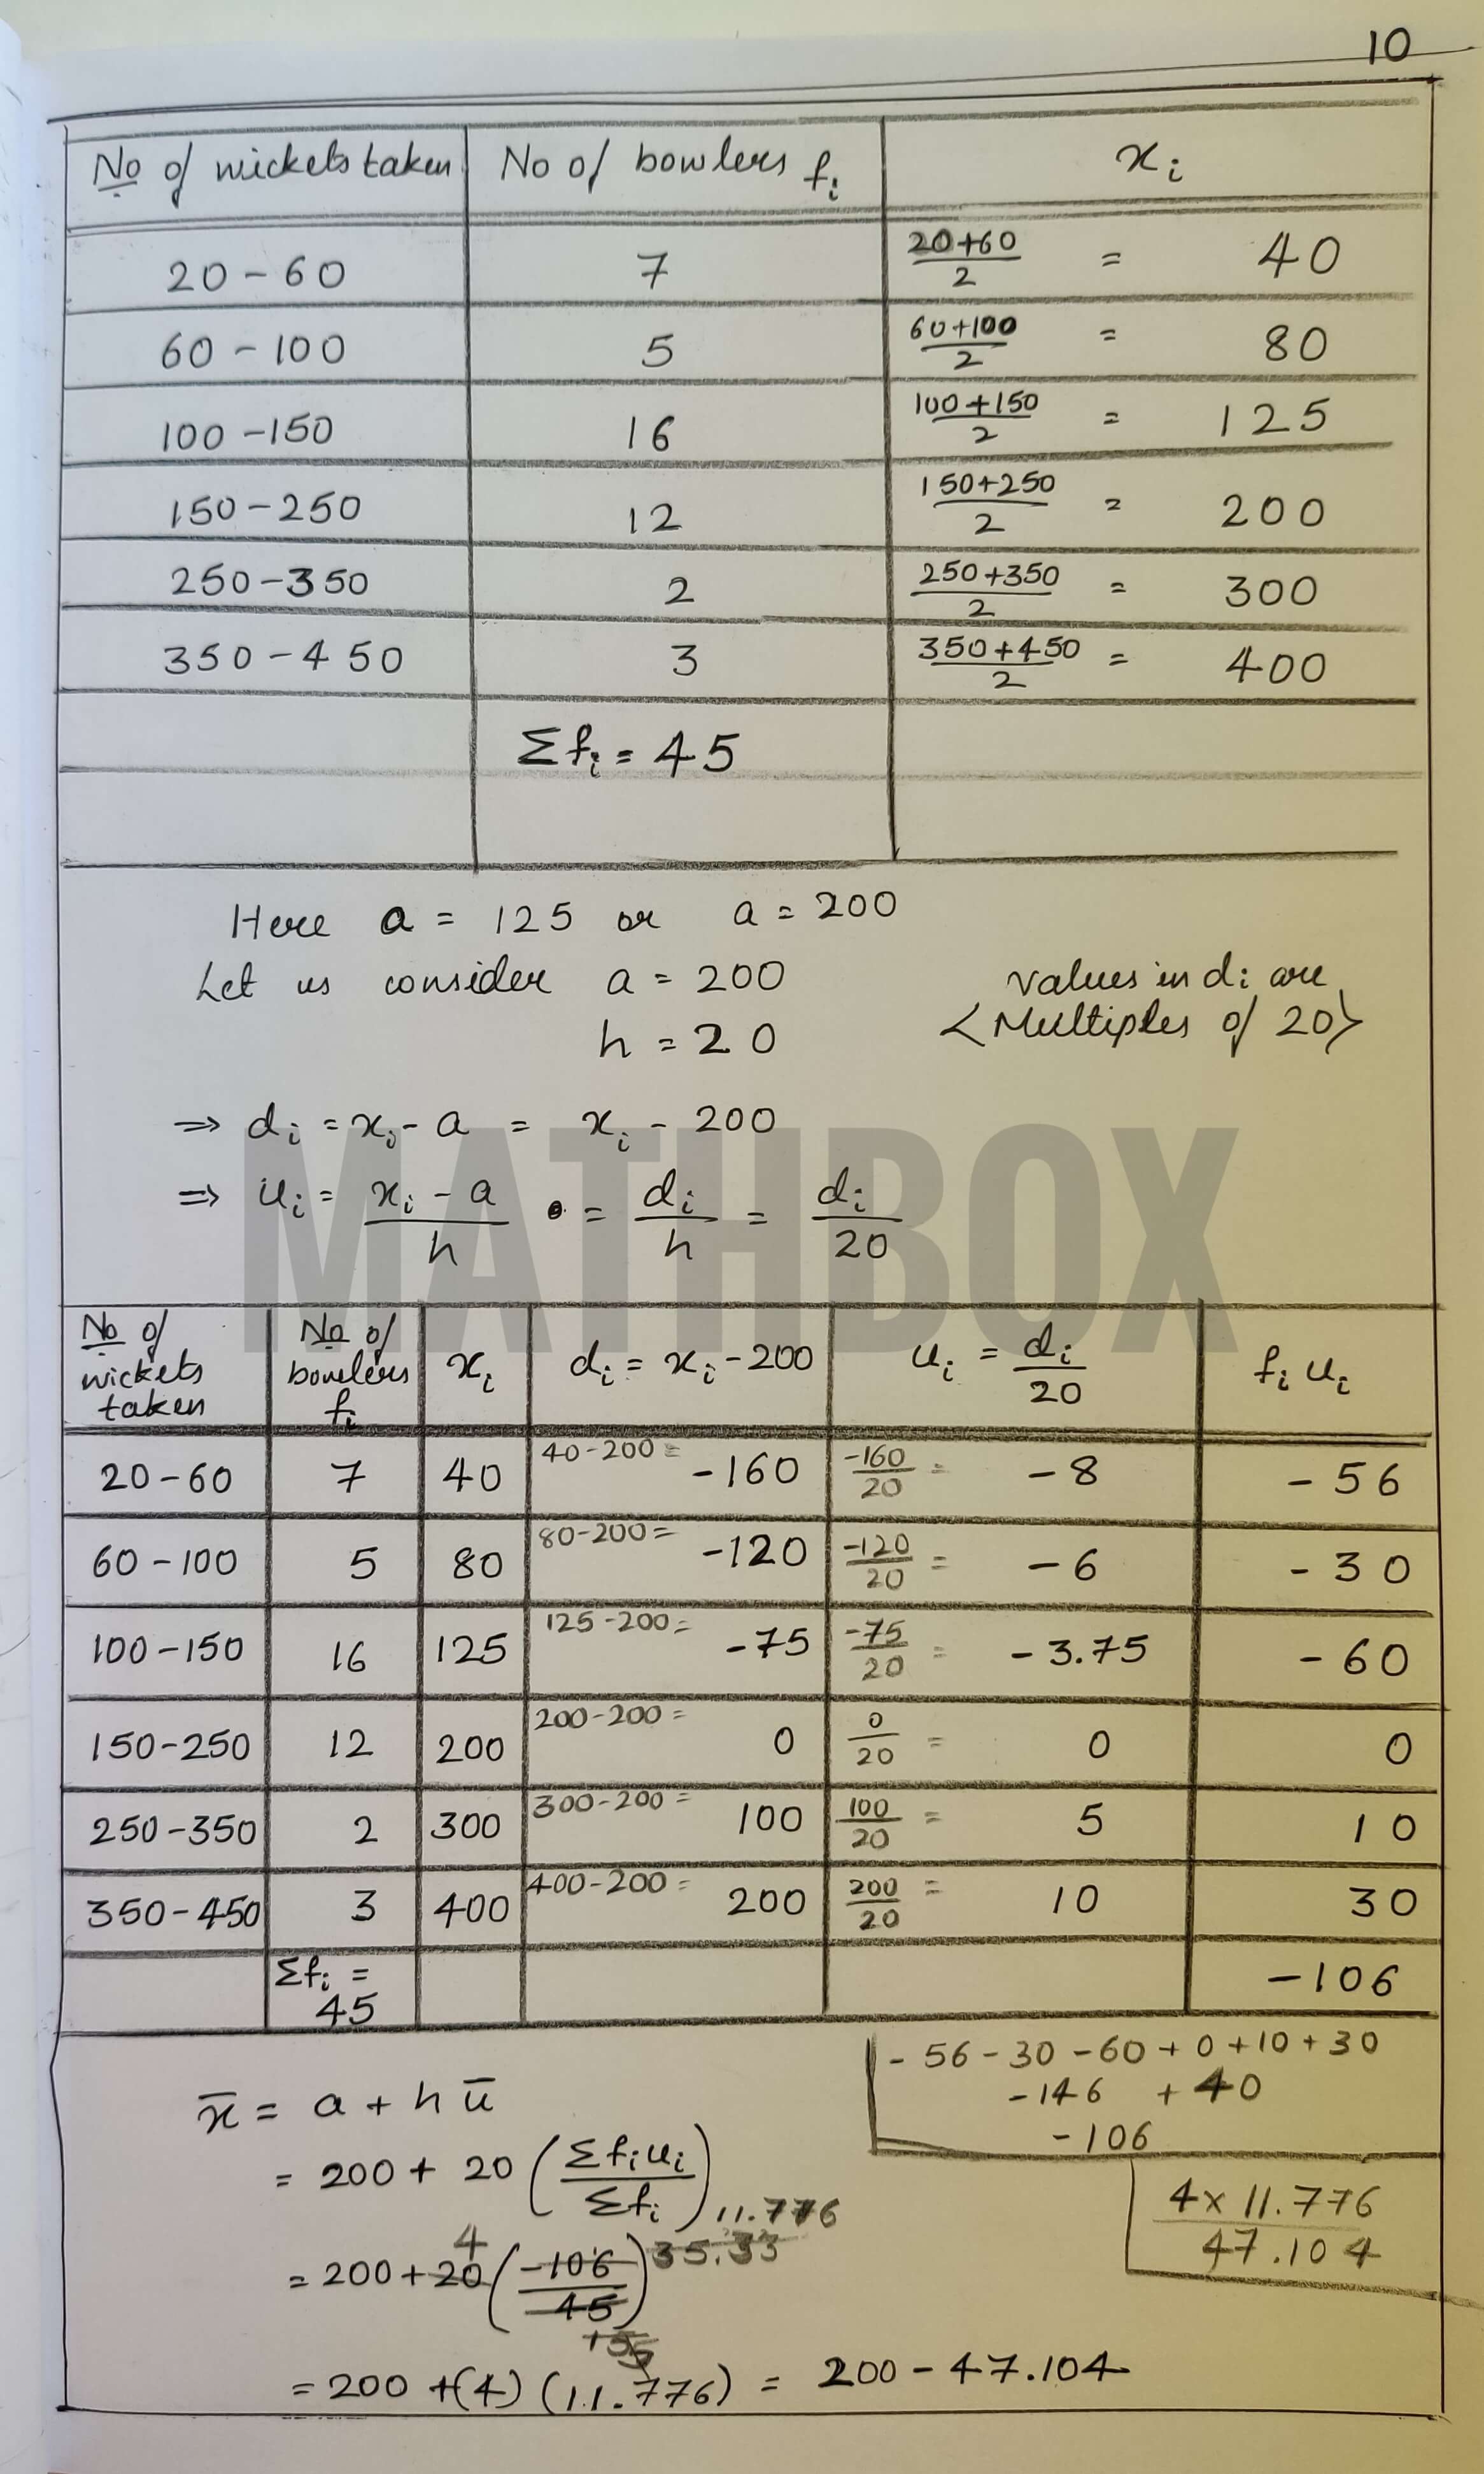 10
No of wickets taken | No of bowlers fᵢ | xᵢ
20 - 60 | 7 | (20+60)/2 = 40
60 - 100 | 5 | (60+100)/2 = 80
100 - 150 | 16 | (100+150)/2 = 125
150 - 250 | 12 | (150+250)/2 = 200
250 - 350 | 2 | (250+350)/2 = 300
350 - 450 | 3 | (350+450)/2 = 400
Σfᵢ = 45
Here a = 125 or a = 200
Let us consider a = 200
h = 20
values in dᵢ are
<Multiples of 20>
⇒ dᵢ = xᵢ - a = xᵢ - 200
⇒ uᵢ = (xᵢ - a)/h = dᵢ/h = dᵢ/20
MATHBOX
No of wickets taken | No of bowlers fᵢ | xᵢ | dᵢ = xᵢ - 200 | uᵢ = dᵢ/20 | fᵢ uᵢ
20 - 60 | 7 | 40 | 40-200 = -160 | -160/20 = -8 | -56
60 - 100 | 5 | 80 | 80-200 = -120 | -120/20 = -6 | -30
100 - 150 | 16 | 125 | 125-200 = -75 | -75/20 = -3.75 | -60
150 - 250 | 12 | 200 | 200-200 = 0 | 0/20 = 0 | 0
250 - 350 | 2 | 300 | 300-200 = 100 | 100/20 = 5 | 10
350 - 450 | 3 | 400 | 400-200 = 200 | 200/20 = 10 | 30
Σfᵢ = 45 | -106
-56 - 30 - 60 + 0 + 10 + 30
-146 + 40
-106
x̄ = a + h ū
= 200 + 20 (Σfᵢuᵢ/Σfᵢ)
11.776
4
35.33
= 200 + 20 (-106/45)
4 x 11.776
47.104
= 200 +(4) (11.776) = 200 - 47.104